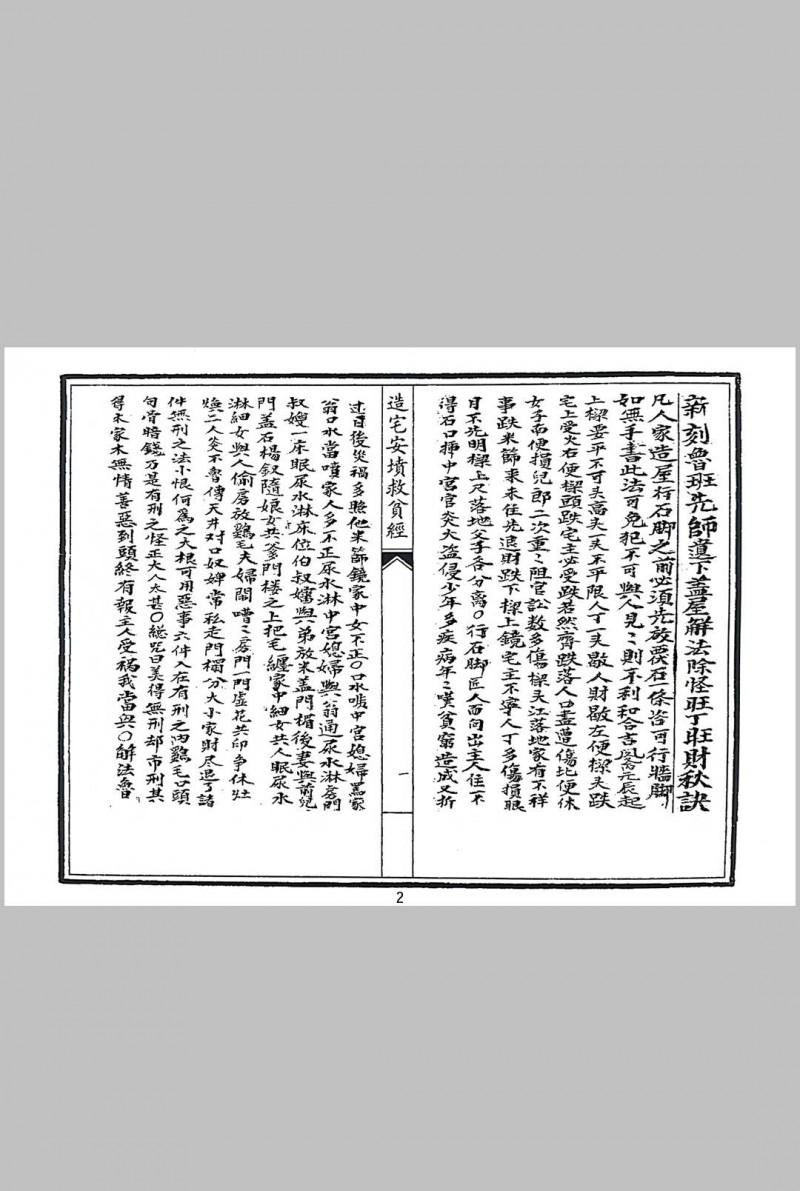 新刻魯班先師遺下蓋屋解法除怪旺丁旺財秋訣
凡人家造屋行石脚之前必須先放覄石一條咨可行牆脚
如無手書此法可免犯不可與人見〻則不利和合吉
上樑要平不可头高头一头不平限人丁一头歇人財歇左便樑头跌
宅上受火右便樑頭跌宅主必受跌若然齊跌落人口盡遭傷比便休
女子南便損兒郎二次重〻阻官訟数多傷樑头江落地家有不祥
事跌米篩乘未住先退財跌下樑上鏡宅主不寧人丁多傷損眼
目不光明樑上尺落地父子各分离〇行石脚匠人面向出主人住不
得石口揷中宮官炎火盜侵少年多疾病年〻嘆貧窮造成又折
造宅安墳救貧經
一
过百後災禍多照他米篩鏡家中女不正〇口水㗙中宮媳婦罵家
翁口水當噴家人多不正尿水淋中宮媳婦與翁通尿水淋房門
叔嫂一床眠尿水淋床位伯叔嬸與弟放米盖門楣後妻與前兒
門盖石楊釵隨娘女共爹門楼之上把毛纏家中細女共人眠尿水
淋細女與人偷房放鷄毛夫婦鬧嘈〻房門一門虛花共印争休灶
煥二人炎不魯傳天井对口奴婢常私走門楣分大小家財尽退了諸
件無刑之法小恨何為之大根可用惡事六件入在有刑之内鷄毛口頭
句骨暗錢乃是有刑之怪正大人太甚〇総咒曰美得無刑却市刑其
得木家木無情善惡到頭終有報主人受禍我當興〇解法魯
2